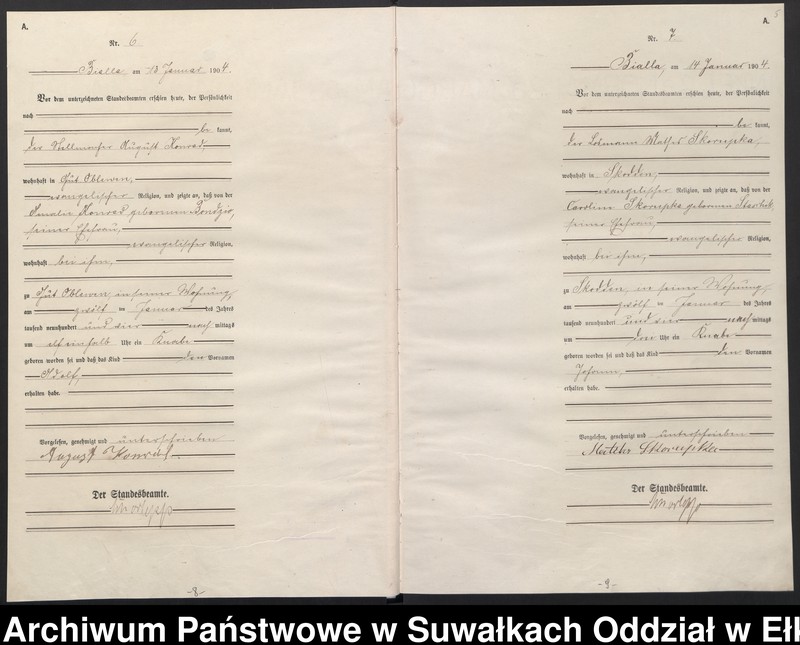 A.
Nr. 6.
Bialla, am 13 Januar 1904.
Vor dem unterzeichneten Standesbeamten erschien heute, der Persönlichkeit
nach
be kannt,
der Stellmacher August Konrad,
wohnhaft in Gut Oblewen,
evangelischer Religion, und zeigte an, daß von der
Amalie Konrad geborenen
seiner Ehefrau,
evangelischer Religion,
wohnhaft bei ihm,
zu Gut Oblewen, in seiner Wohnung,
am zwölf ten Januar des Jahres
tausend neunhundert und vier nach mittags
um elf einhalb Uhr ein Knabe
geboren worden sei und daß das Kind den Vornamen
Adolf,
erhalten habe.
Vorgelesen, genehmigt und unterschrieben
August Konrad.
Der Standesbeamte.
-8-
5
A.
Nr. 7.
Bialla, am 14 Januar 1904.
Vor dem unterzeichneten Standesbeamten erschien heute, der Persönlichkeit
nach
be kannt,
der Losmann Mathes Skorupka,
wohnhaft in Skodden,
evangelischer Religion, und zeigte an, daß von der
Caroline Skorupka geborenen
seiner Ehefrau,
evangelischer Religion,
wohnhaft bei ihm,
zu Skodden, in seiner Wohnung,
am zwölf ten Januar des Jahres
tausend neunhundert und vier nach mittags
um Uhr ein Knabe
geboren worden sei und daß das Kind den Vornamen
Johann,
erhalten habe.
Vorgelesen, genehmigt und unterschrieben
Skorupka
Der Standesbeamte.
-9-
Archiwum Państwowe w Suwałkach Oddział w Ełk